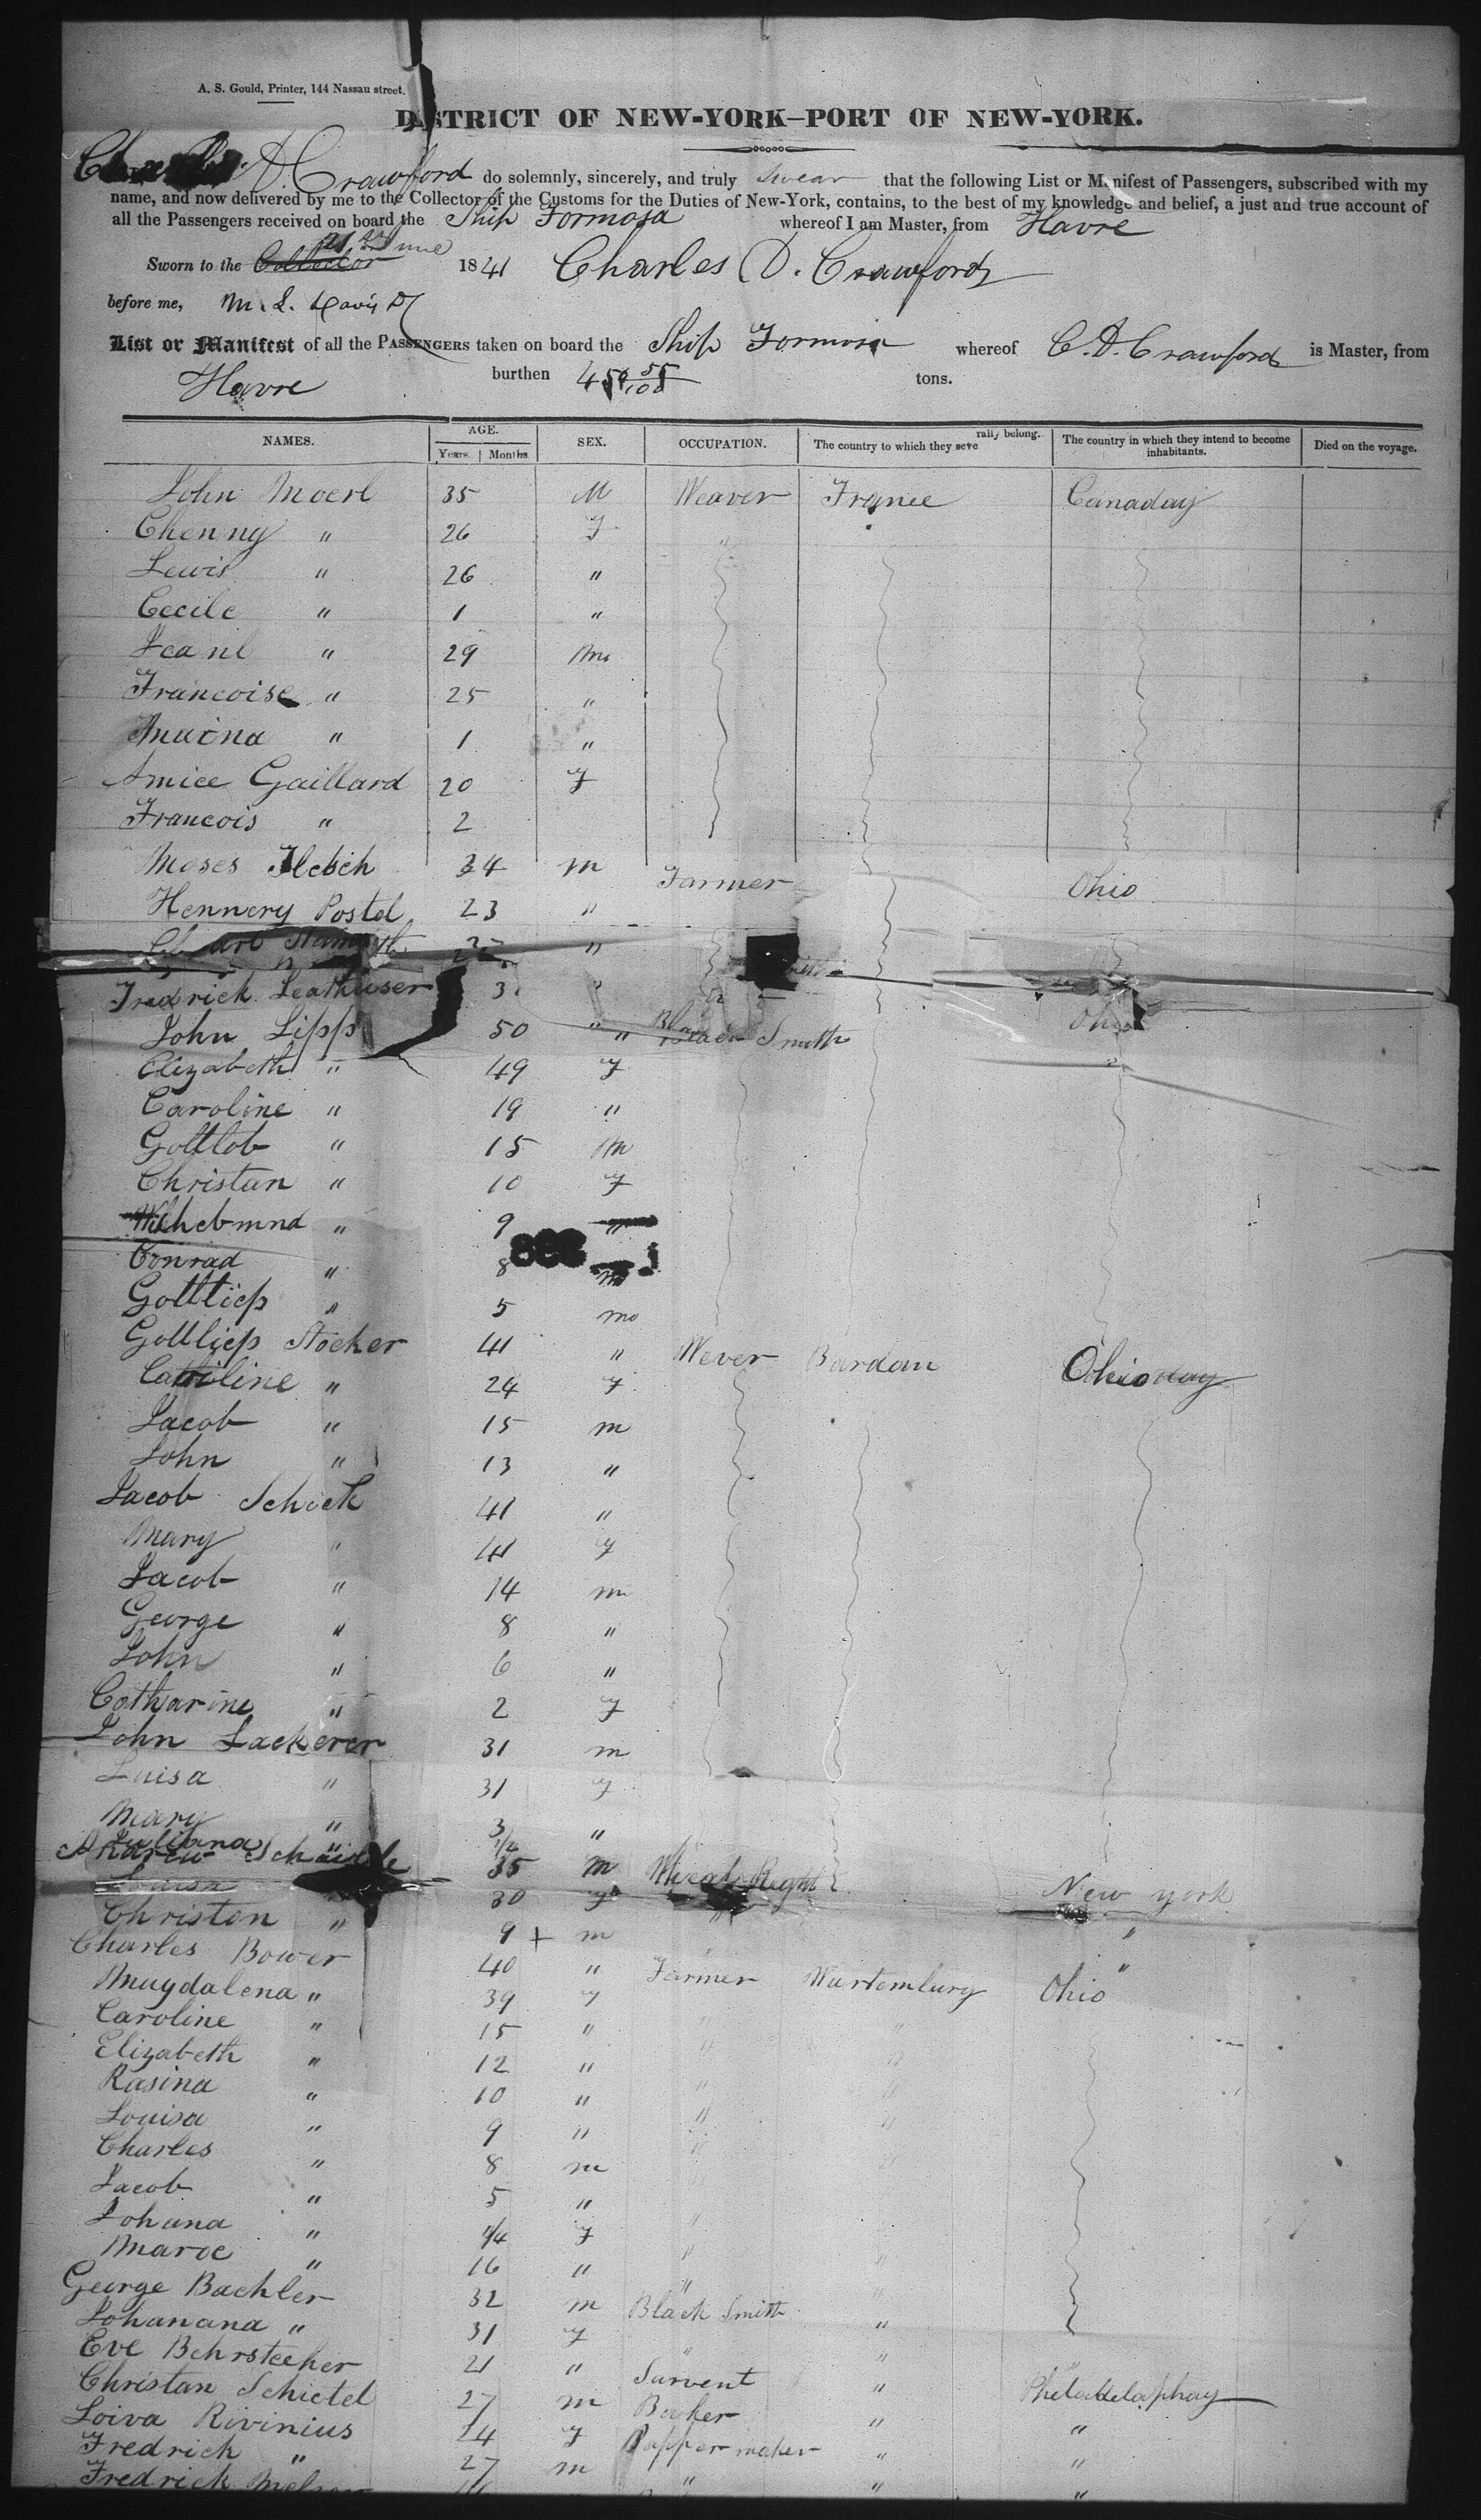 A. S. Gould, Printer, 144 Nassau street.
DISTRICT OF NEW-YORK—PORT OF NEW-YORK.
D. Crawford do solemnly, sincerely, and truly Swear that the following List or Manifest of Passengers, subscribed with my
name, and now delivered by me to the Collector of the Customs for the Duties of New-York, contains, to the best of my knowledge and belief, a just and true account of
all the Passengers received on board the Ship Formosa whereof I am Master, from Havre
Sworn to the Collector 21 June 1841 Charles D. Crawford
before me, M. L. Davis
List or Manifest of all the PASSENGERS taken on board the Ship Formosa whereof C. D. Crawford is Master, from
Havre burthen 450 55/100 tons.
NAMES. AGE. SEX. OCCUPATION. The country to which they severally belong. The country in which they intend to become inhabitants. Died on the voyage.
Years. Months.
John Moerl 35 M Weaver France Canaday
Chenny " 26 F "
Lewis " 26 "
Cecile " 1 "
Jeanl " 29 m
Francoise " 25 "
Maina " 1 "
Amice Gaillard 20 F
Francois " 2
Moses 34 m Farmer Ohio
Hennery Postel 23 "
"
Fredrick Leathuser 3 "
John Lipp 50 " " Black Smith Ohio
Elizabeth " 49 F
Caroline " 19 "
Gottlob " 15 m
Christan " 10 F
Wilhebmnd " 9 "
Conrad " 8 m
Gottliep " 5 m
Gottliep Stocker 41 " Wever Bardan Ohio
Catiline " 24 F
Jacob " 15 m
John " 13 "
Jacob Schick 41 "
Mary " 41 F
Jacob " 14 m
George " 8 "
John " 6 "
Catharine " 2 F
John Lackerer 31 m
Luisa " 31 F
Mary " 3 "
Juliana " 1/4
Andrew Schaidle 35 m Wheel Right New york
Louisa 30 F "
Christon " 9 + m "
Charles Bower 40 " Farmer Wurtemburg Ohio
Muygdalena " 39 F
Caroline " 15 " "
Elizabeth " 12 " "
Rasina " 10 " "
Louisa " 9 " "
Charles " 8 m "
Jacob " 5 "
Johana " 1/4 F
Maroe " 16 " "
George Bachler 32 m Black Smith "
Johanana " 31 F " "
Eve Behrstecher 21 " Survent " "
Christan Schietel 27 m Baker " Pheladelaphay
Loiva Rivinius 24 F Papper maker " "
Fredrich " 27 m " " "
Fredrick "